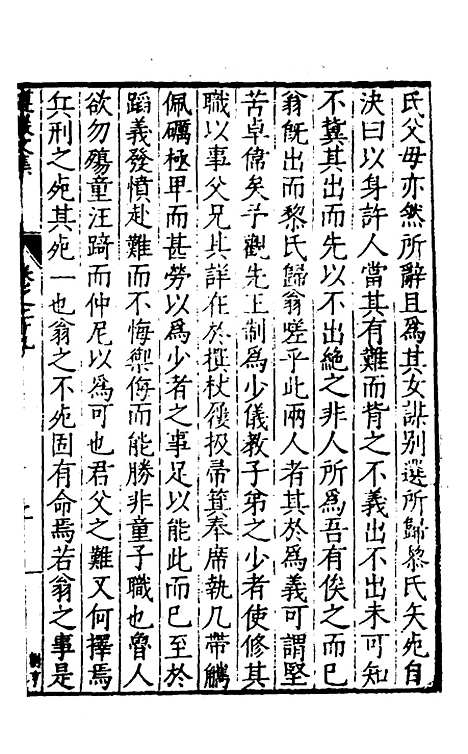 氏父母亦然所辭且爲其女謀別選所歸黎氏矢死自
決曰以身許人當其有難而背之不義出不出未可知
不冀其出而先以不出絶之非人所爲吾有俟之而已
翁既出而黎氏歸翁嗟乎此兩人者其於爲義可謂堅
苦卓偉矣予觀先王制爲少儀教子弟之少者使修其
職以事父兄其詳在於撰杖屨扱帚箕奉席執几帶觿
佩礪極卑而甚勞以爲少者之事足以能此而已至於
蹈義發憤赴難而不悔禦侮而能勝非童子職也魯人
欲勿殤童汪踦而仲尼以爲可也君父之難又何擇焉
兵刑之死其死一也翁之不死固有命焉若翁之事是